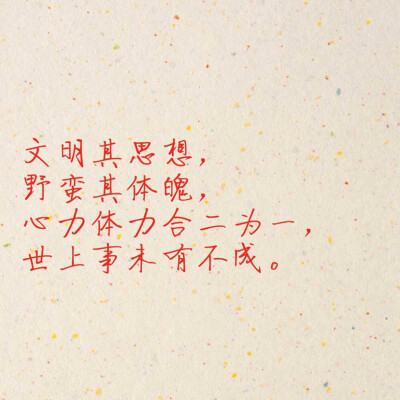 文明其思想，
野蛮其体魄，
心力体力合二为一，
世上事未有不成。